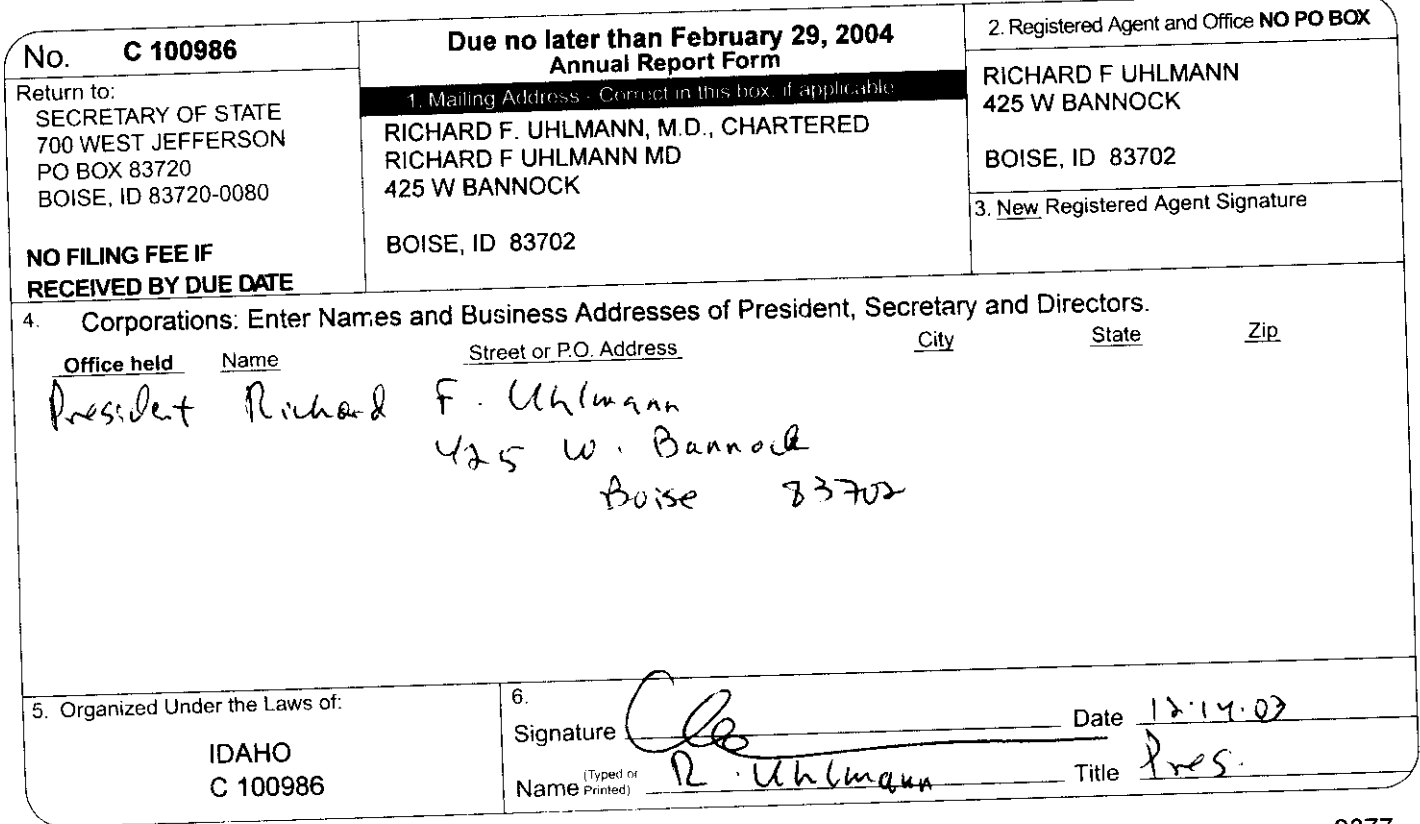 No. C 100986
Return to:
SECRETARY OF STATE
700 WEST JEFFERSON
PO BOX 83720
BOISE, ID 83720-0080
NO FILING FEE IF
RECEIVED BY DUE DATE
Due no later than February 29, 2004
Annual Report Form
1. Mailing Address - Correct in this box, if applicable
RICHARD F. UHLMANN, M.D., CHARTERED
RICHARD F UHLMANN MD
425 W BANNOCK
BOISE, ID 83702
2. Registered Agent and Office NO PO BOX
RICHARD F UHLMANN
425 W BANNOCK
BOISE, ID 83702
3. New Registered Agent Signature
4. Corporations: Enter Names and Business Addresses of President, Secretary and Directors.
Office held Name Street or P.O. Address City State Zip
President Richard F. Uhlmann
425 W. Bannock
Boise 83702
5. Organized Under the Laws of:
IDAHO
C 100986
6.
Signature Date 12.14.03
Name (Typed or Printed) R. Uhlmann Title Pres.